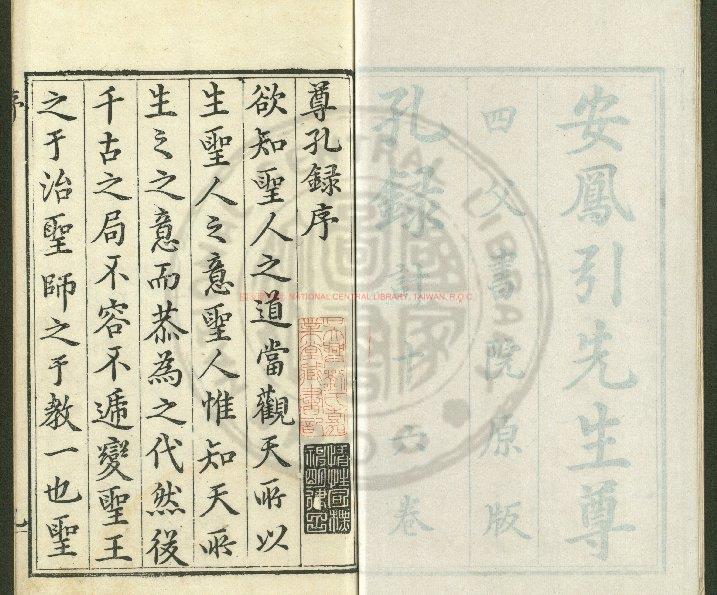 安鳳引先生尊
四父書院原版
孔録計十六卷
尊孔録序
欲知聖人之道當觀天所以
生聖人之意聖人惟知天所
生之之意而恭為之代然後
千古之局不容不遞變聖王
之于治聖師之于教一也聖
序
NATIONAL CENTRAL LIBRARY, TAIWAN, R.O.C.